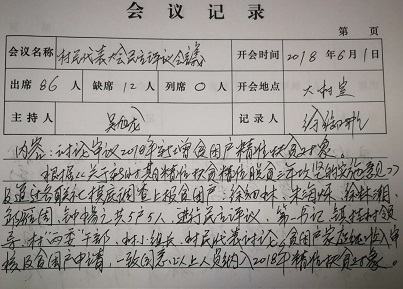 会议记录
第 页
会议名称 村民代表大会民主评议会议 开会时间 2018年6月1日
出席 86人 缺席 12人 列席 0人 开会地点 大村室
主持人 吴旭龙 记录人
内容:讨论审议2018年新增贫困户精准扶贫对象。
根据《关于新时期精准扶贫精准脱贫三年攻坚的实施意见》
及通过各自然村摸底调查上报贫困户:徐
5户5人,进行民主评议,第一书记、镇驻村领
导、村"两委"干部、村小组长、村民代表讨论,贫困户家庭经准入审
核及贫困户申请,一致同意以上人员纳入2018年精准扶贫对象。